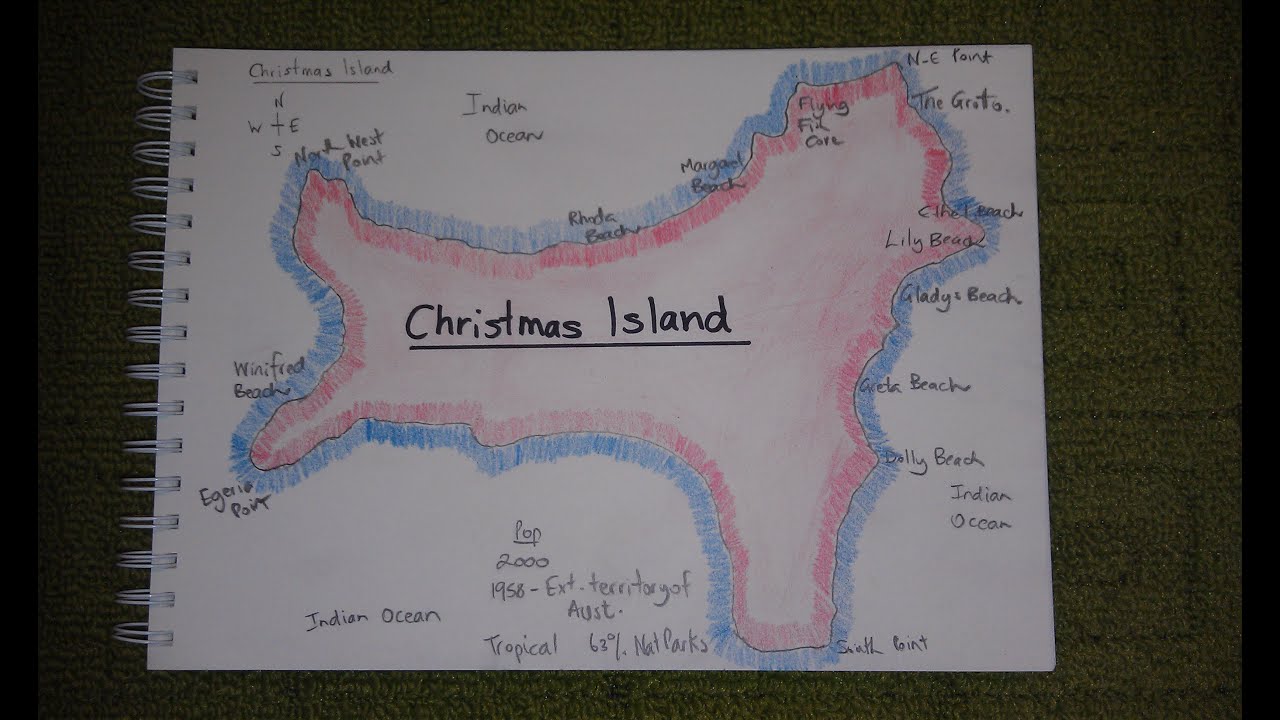 Christmas Island
N
W E
S
Indian
Ocean
N-E Point
The Groto.
Flyng
Fish
Cove
North West
Point
Margaret
Beach
Rhoda
Beach
Ethel Beach
Lily Beach
Gladys Beach
Christmas Island
Winifred
Beach
Greta Beach
Dolly Beach
Egeria
Point
Indian
Ocean
Pop
2000
1958 - Ext. territory of
Aust.
Indian Ocean
Tropical 63% Nat Parks
South Point